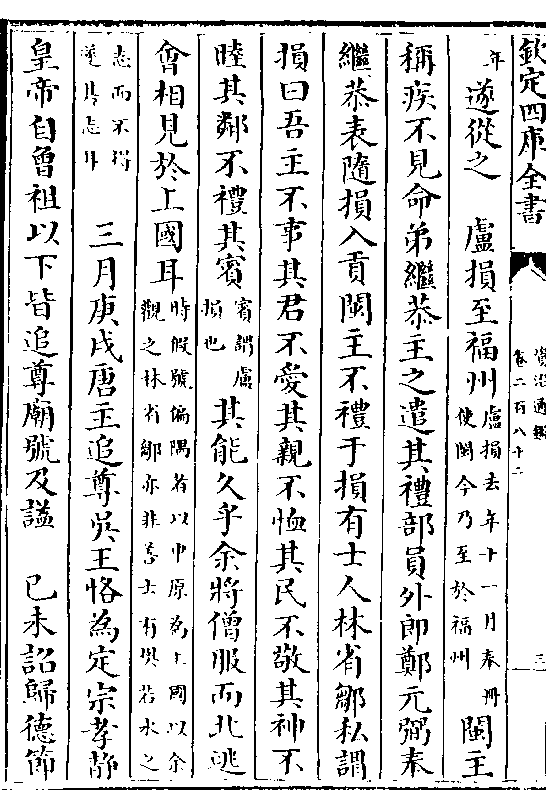 欽定四庫全書
資治通鑑
卷二百八十二
三
年遂從之　盧損至福州盧損去年十一月奉冊使閩今乃至於福州閩主
稱疾不見命弟繼恭主之遣其禮部員外郎鄭元弼奉
繼恭表隨損入貢閩主不禮于損有士人林省鄒私謂
損曰吾主不事其君不愛其親不恤其民不敬其神不
睦其鄰不禮其賓賓謂盧損也其能久乎余將僧服而北逃
會相見於上國耳時假號偏隅者以中原為上國以余觀之林省鄒亦非善士有與若水之
志而不得遂其志耳　三月庚戌唐主追尊吳王恪為定宗孝靜
皇帝自曾祖以下皆追尊廟號及諡　己未詔歸德節